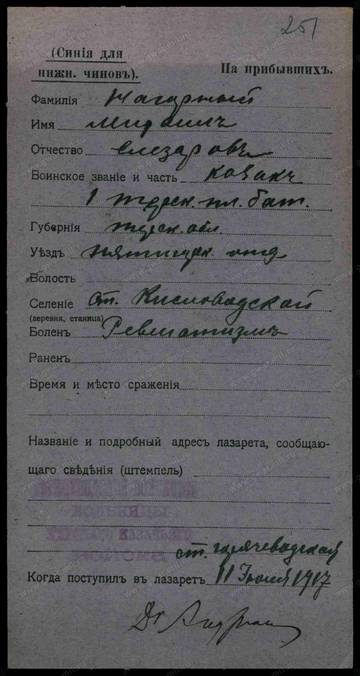 251
(Синія для
нижн. чиновъ).
На прибывшихъ.
Фамилія Нагорный
Имя Михаилъ
Отчество Елезаровъ
Воинское званіе и часть козакъ
1 терск. пл. бат.
Губернія терск. обл.
Уѣздъ пятигорск. отд
Волость
Селеніе ст. Кисловодской
(деревня, станица)
Боленъ Ревматизмъ
Раненъ
Время и мѣсто сраженія
Названіе и подробный адресъ лазарета, сообщаю-
щаго свѣдѣнія (штемпель)
БОЛЬНИЦЫ
ст. горячеводская
Когда поступилъ въ лазаретъ 11 Іюля 1917
Dr